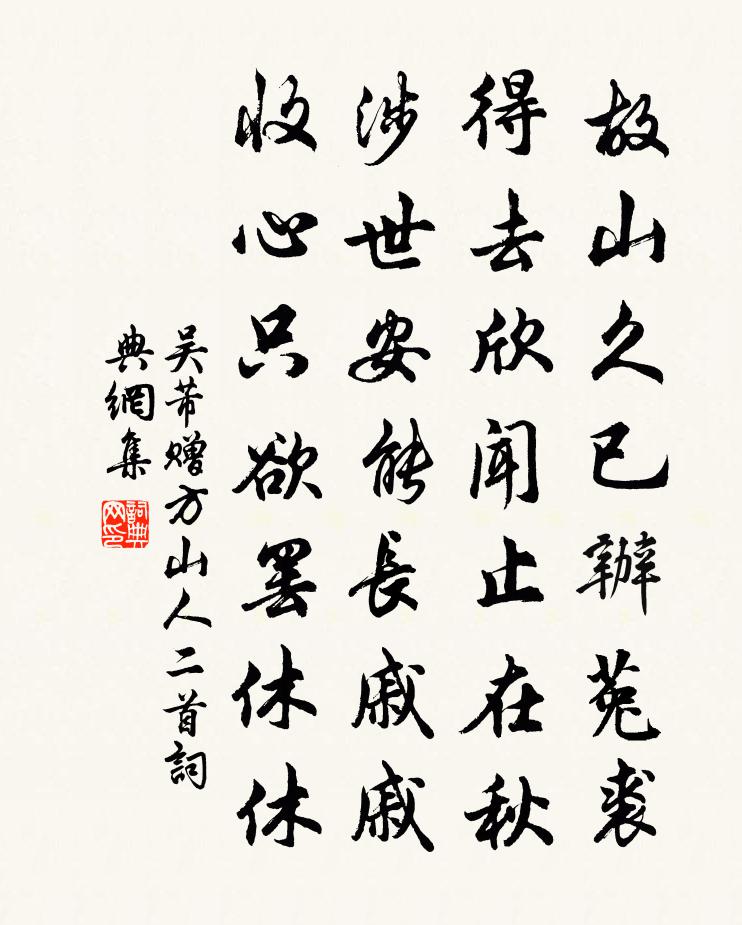 故山久已辦菟裘
得去欣闻止在秋
涉世安能長戚戚
收心只欲罢休休
吴芾赠方山人二首詞
典網集
詞典网印